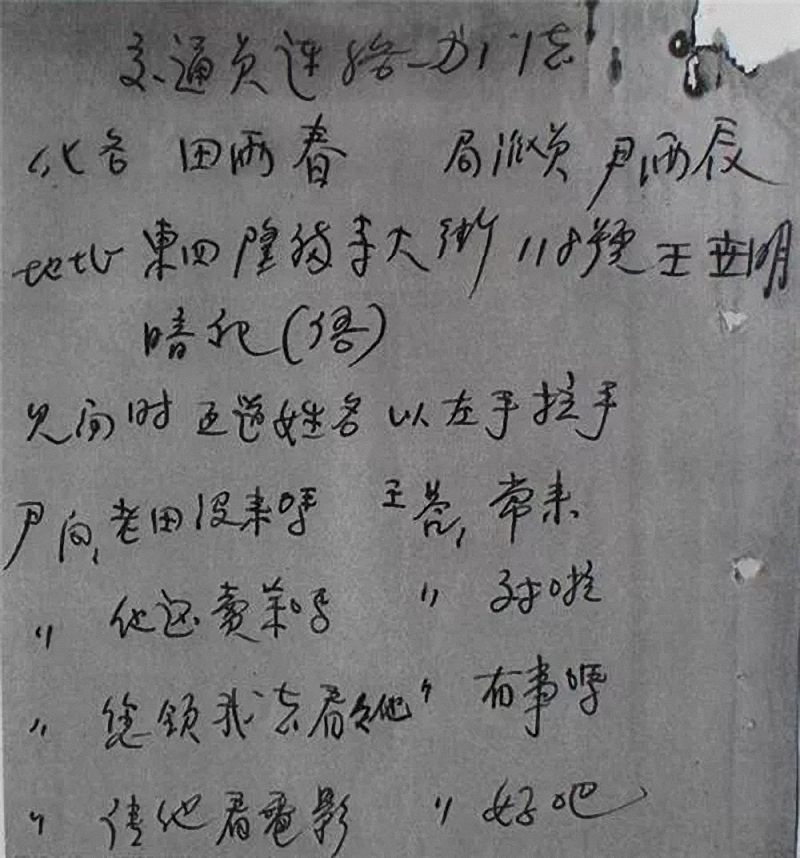 交通员连络办法
化名 田雨春 局派员 尹雨辰
地址 東四隆福寺大街118號王世明
暗犯(语)
见面时互道姓名以左手拉手
尹问,老田没来吗 王答,常来
〃 他还卖菜吗 〃 对啦
〃 您领我去看看他 〃 有事吗
〃 请他看電影 〃 好吧